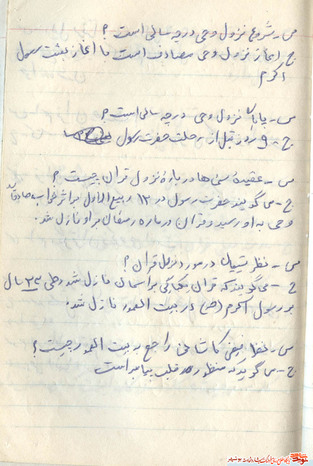 س - شروع نزول وحی درچه سالی است ؟
ج - آغاز نزول وحی مصادف است با آغاز بعثت رسول
اکرم
س - پایان نزول وحی درچه سالی است ؟
ج - ۹ روز قبل از رحلت حضرت رسول
س - عقیده سنی ها درباره نزول قران چیست ؟
ج - می گویند حضرت رسول در ۱۲ ربیع الاول بر اثر خواب صادق
وحی به او رسید و قران درماه رمضان بر او نازل شد .
س - نظر شیعیان در مورد نزول قران ؟
ج - می گویند که قران یکبار بر آسمان نازل شد و طی ۲۳ سال
بر رسول اکرم (ص) در بیت المعمور نازل شد .
س - نظر فیض کاشانی راجع به بیت المعمور چیست ؟
ج - می گوید که منظور قلب پیامبر است